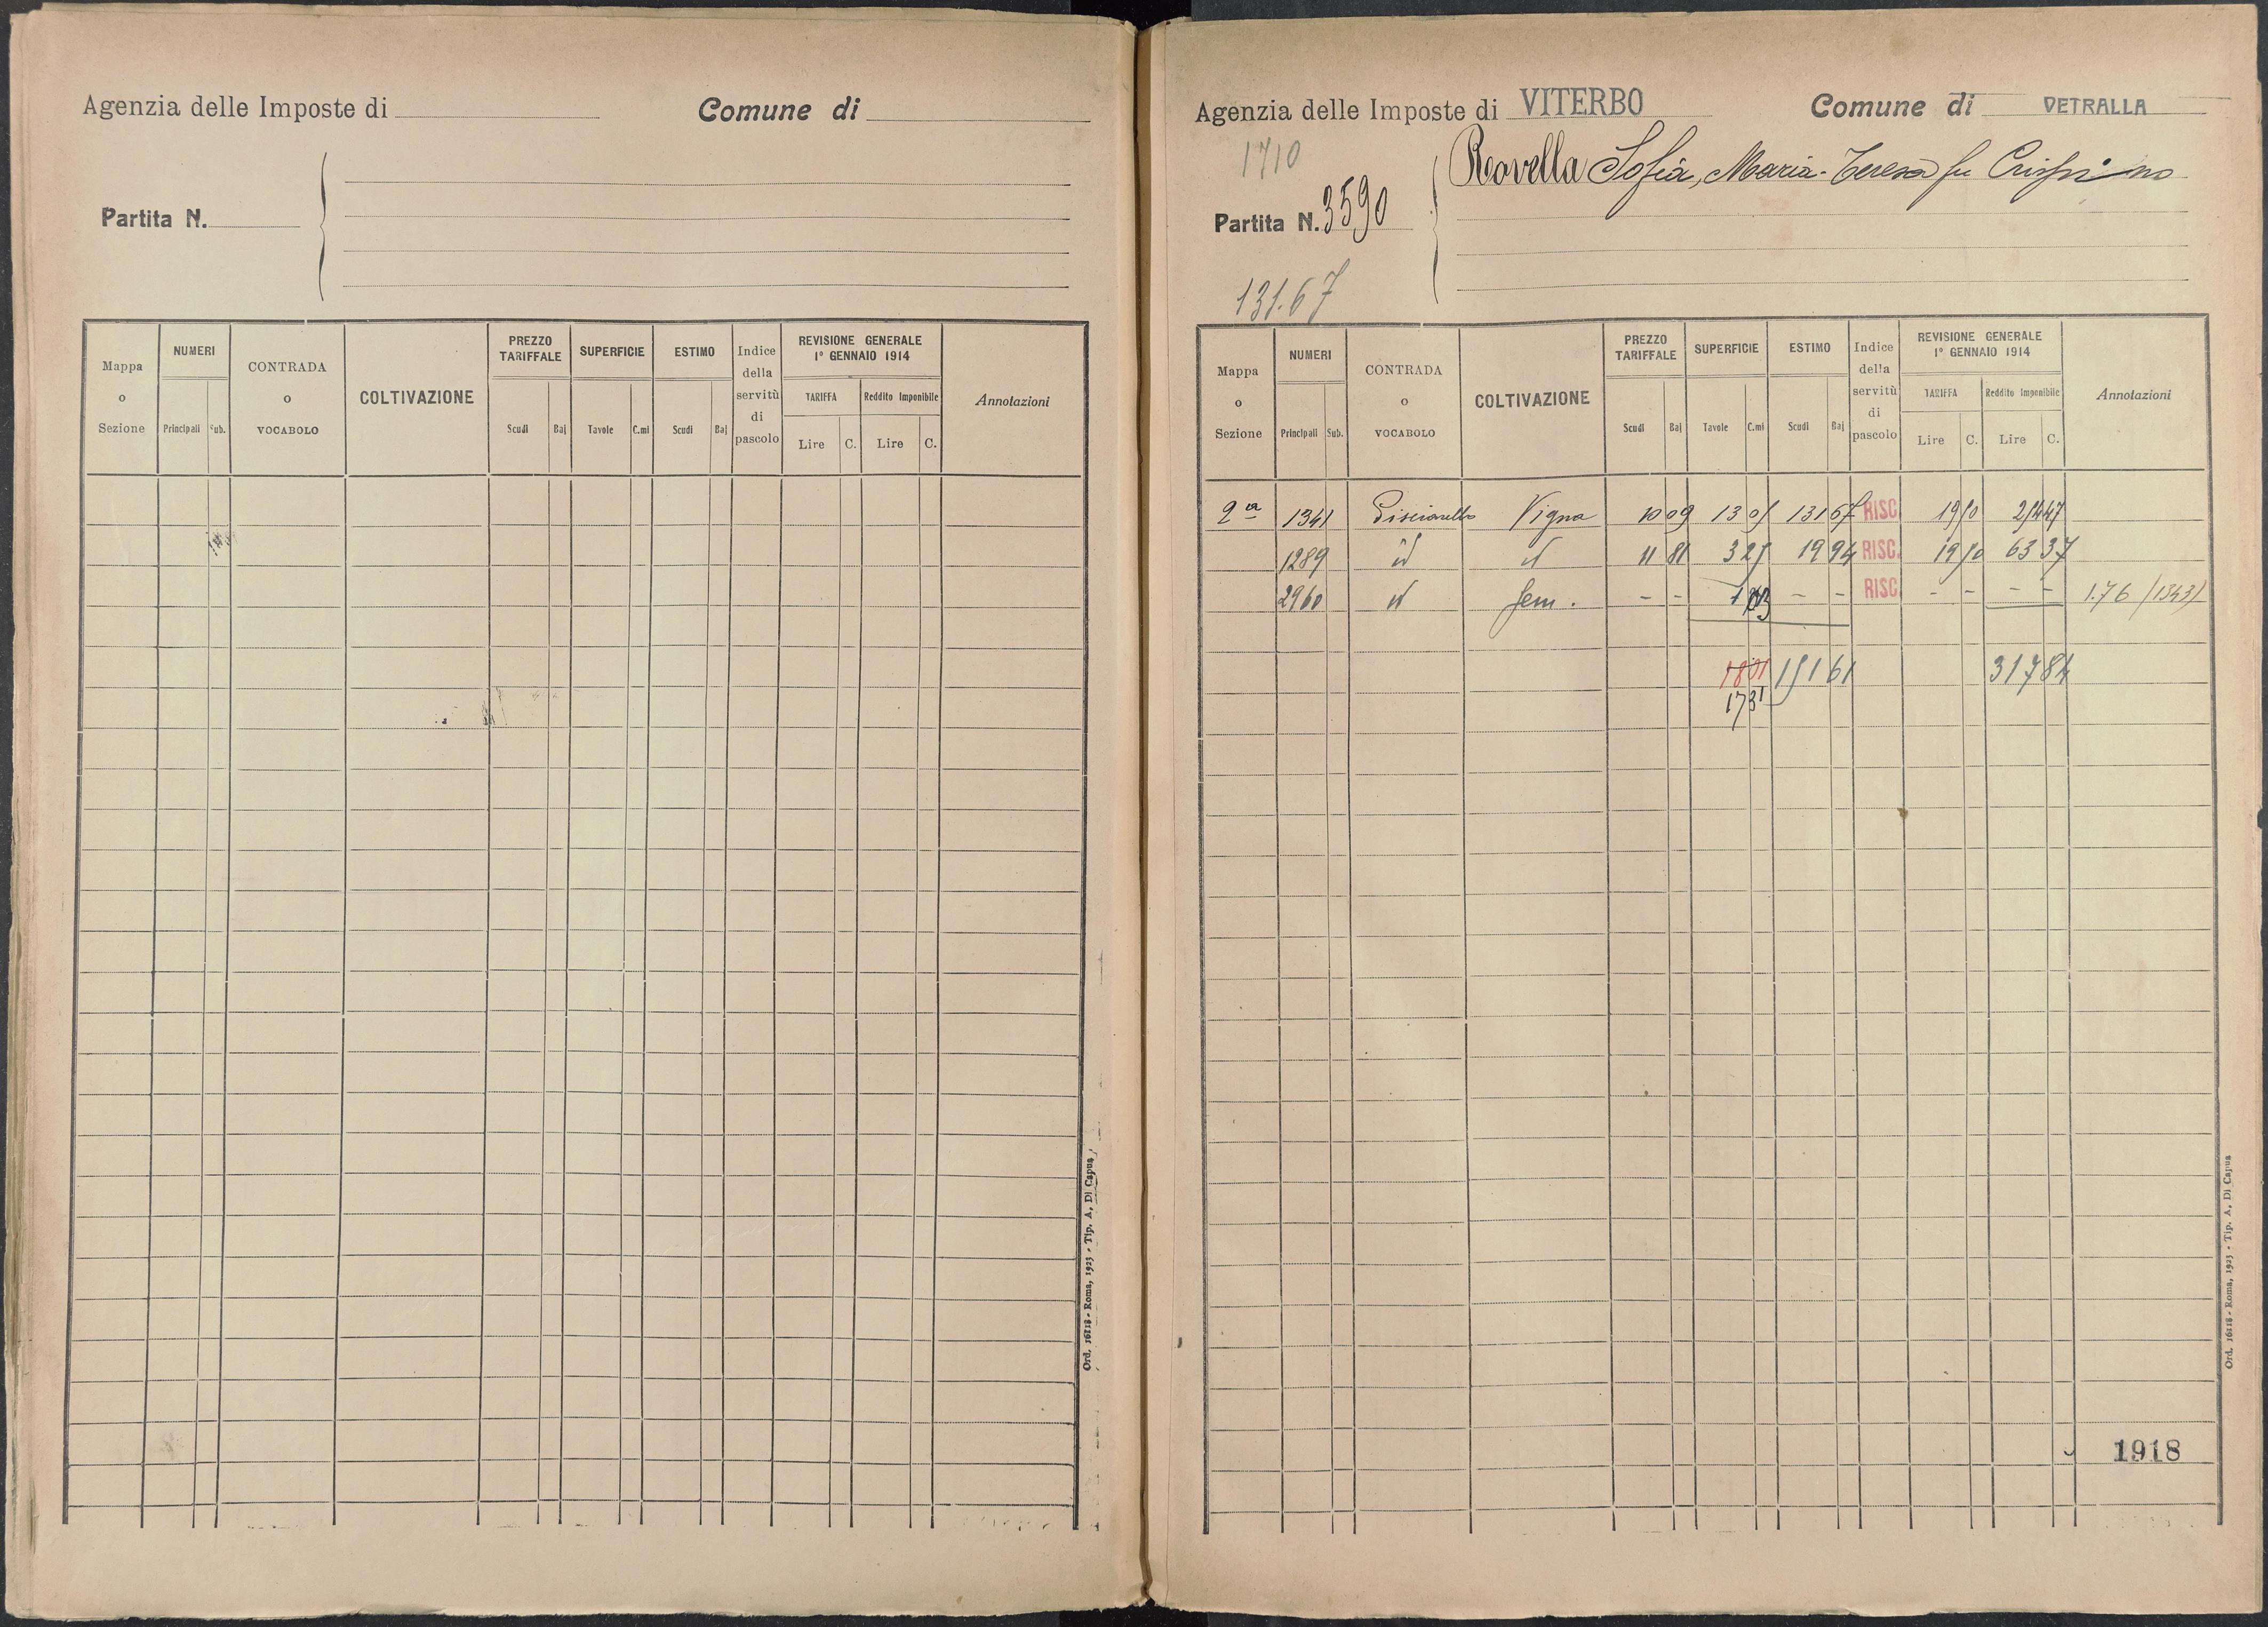 Agenzia delle Imposte di
Comune di
Partita N.
Mappa o Sezione
NUMERI
Principali
Sub.
CONTRADA o VOCABOLO
COLTIVAZIONE
PREZZO TARIFFALE
Scudi
Baj
SUPERFICIE
Tavole
C.mi
ESTIMO
Scudi
Baj
Indice della servitù di pascolo
REVISIONE GENERALE 1° GENNAIO 1914
TARIFFA
Lire
C.
Reddito Imponibile
Lire
C.
Annotazioni
Ord. 16118 - Roma, 1923 - Tip. A. Di Capua
Agenzia delle Imposte di VITERBO
Comune di VETRALLA
1710
Partita N. 3590
Rovella Sofia, Maria-Teresa fu Crispino
131.67
Mappa o Sezione
NUMERI
Principali
Sub.
CONTRADA o VOCABOLO
COLTIVAZIONE
PREZZO TARIFFALE
Scudi
Baj
SUPERFICIE
Tavole
C.mi
ESTIMO
Scudi
Baj
Indice della servitù di pascolo
REVISIONE GENERALE 1° GENNAIO 1914
TARIFFA
Lire
C.
Reddito Imponibile
Lire
C.
Annotazioni
2ª 1341 Vigna 10 09 13 05 131 67 RISC. 19 50 254 47
1289 id id 11 81 3 25 19 94 RISC. 19 50 63 37
2960 id sem. - - - - RISC. - - - - 1.76 (1343)
18 01 151 61 317 84
17 31
1918
Ord. 16118 - Roma, 1923 - Tip. A. Di Capua